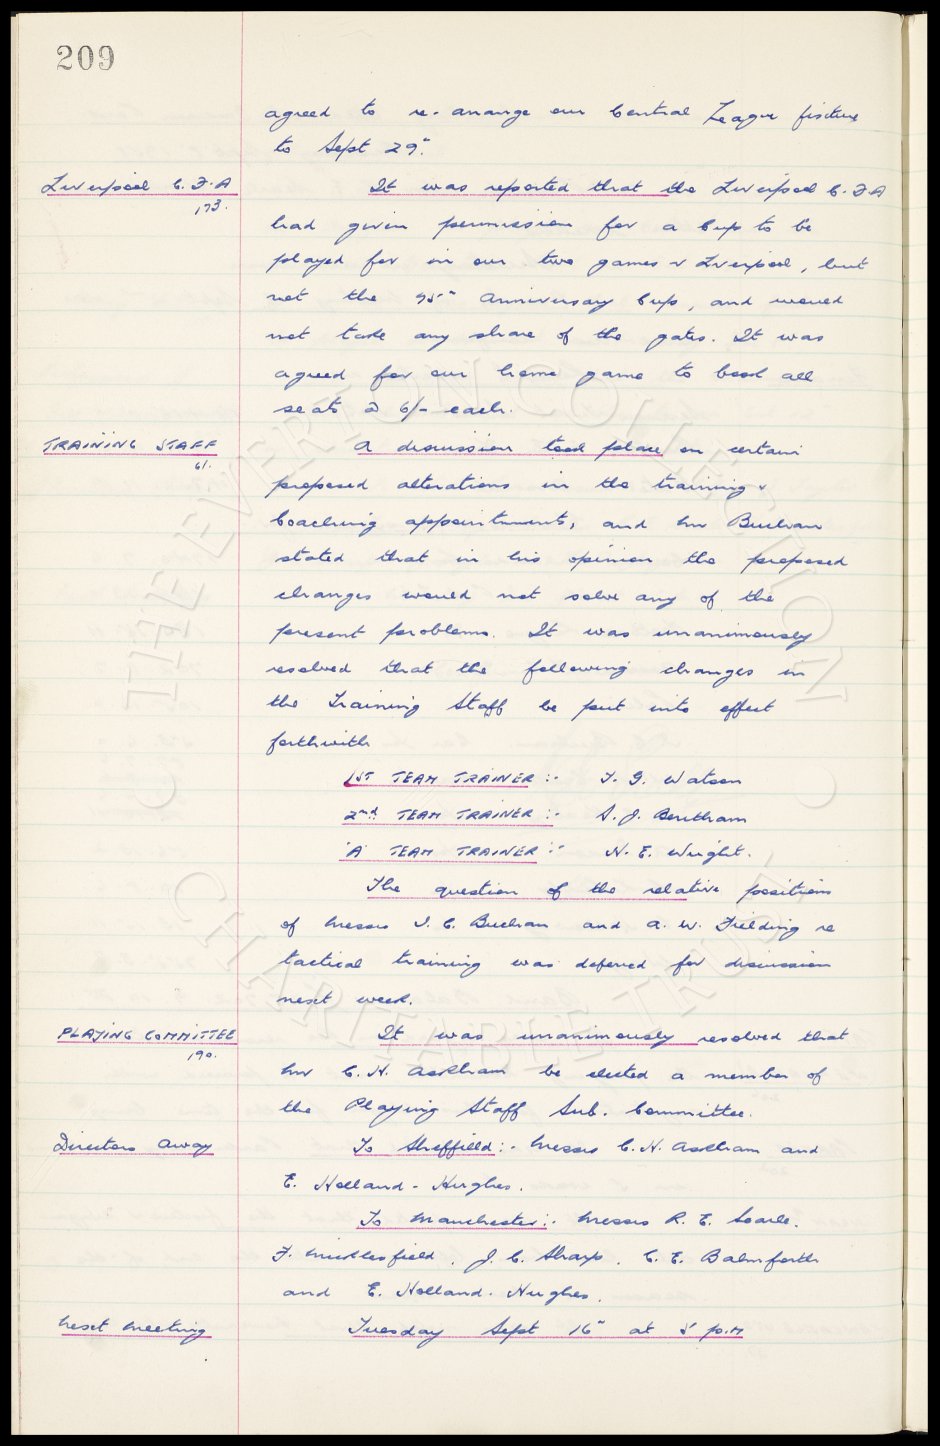 209
agreed to re-arrange our Central League fixture
to Sept 29".
Liverpool C.F.A
173.
It was reported that the Liverpool C.F.A
had given permission for a Cup to be
played for in our two games v Liverpool, but
not the 75" Anniversary Cup, and would
not take any share of the gates. It was
agreed for our home game to book all
seats @ 6/- each.
TRAINING STAFF
61.
A discussion took place on certain
proposed alterations in the training &
Coaching appointments, and Mr Buchan
stated that in his opinion the proposed
changes would not solve any of the
present problems. It was unanimously
resolved that the following changes in
the Training Staff be put into effect
forthwith
1ST TEAM TRAINER :- T. G. Watson
2nd TEAM TRAINER :- S. J. Bentham
'A' TEAM TRAINER :- H. E. Wright.
The question of the relative positions
of Messrs I. C. Buchan and A. W. Fielding re
tactical training was deferred for discussion
next week.
PLAYING COMMITTEE
190.
It was unanimously resolved that
Mr C. H. Askham be elected a member of
the Playing Staff Sub. Committee.
Directors Away
To Sheffield :- Messrs C. H. Askham and
E. Holland-Hughes.
To Manchester :- Messrs R. E. Searle.
F. Micklesfield, J. C. Sharp, C. E. Balmforth
and E. Holland-Hughes.
Next Meeting
Tuesday Sept 16" at 5 p.m
THE EVERTON COLLECTION
CHARITABLE TRUST